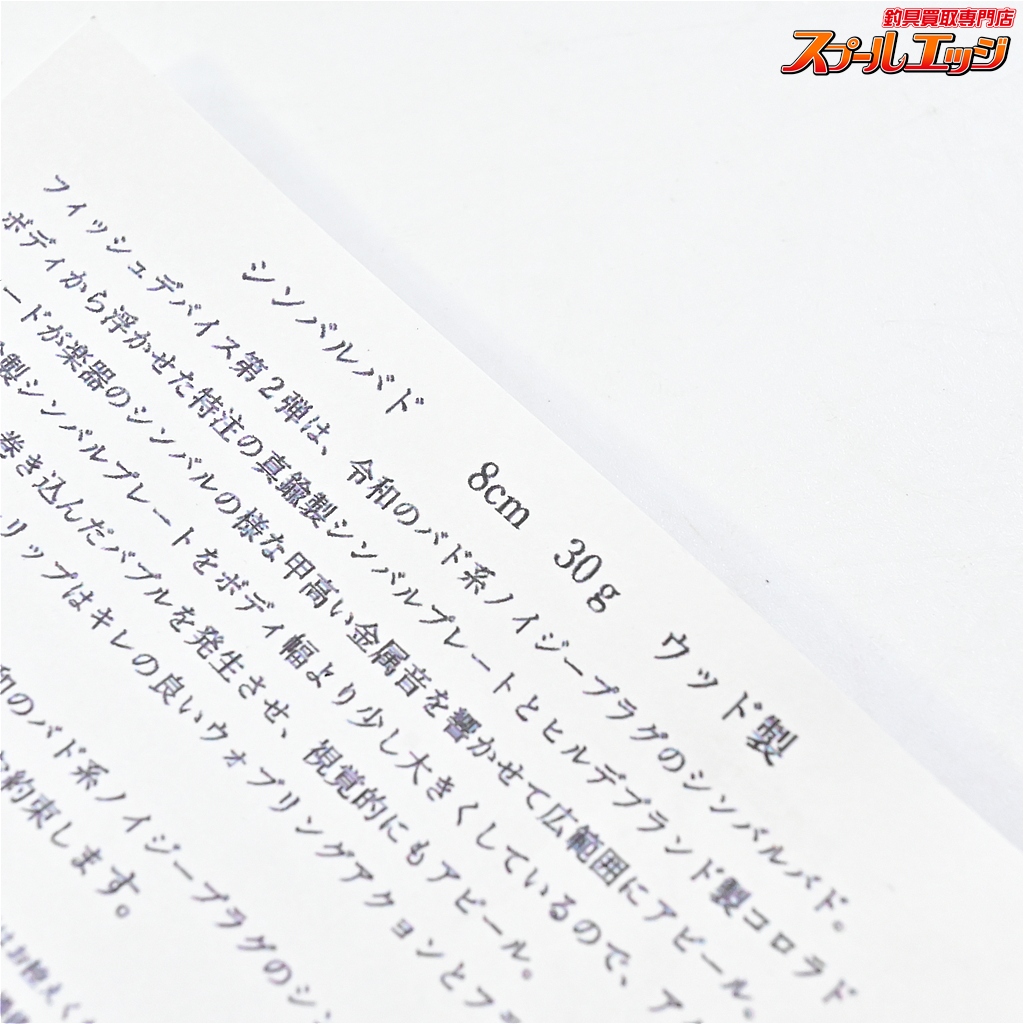 釣具買取専門店
スプールエッジ
シンバルバド 8cm 30g ウッド製
フィッシュデバイス第2弾は、令和のバド系ノイジープラグのシンバルバド。
ボディから浮かせた特注の真鍮製シンバルプレートとヒルデブランド製コロラド
ードが楽器のシンバルの様な甲高い金属音を響かせて広範囲にアピール。
製シンバルプレートをボディ幅より少し大きくしているので、ア
巻き込んだバブルを発生させ、視覚的にもアピール。
リップはキレの良いウォブリングアクションとフラ
和のバド系ノイジープラグのシン
約束します。